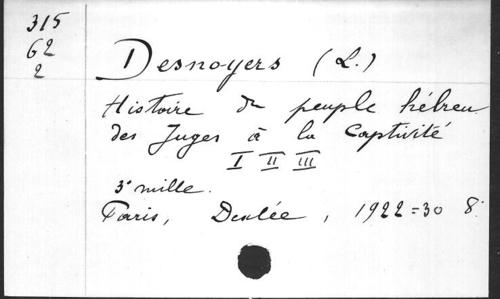 315
62
2
Desnoyers (L.)
Histoire du peuple hébreu
des Juges à la Captivité
I II III
3e mille.
Paris, Desclée, 1922=30 8°